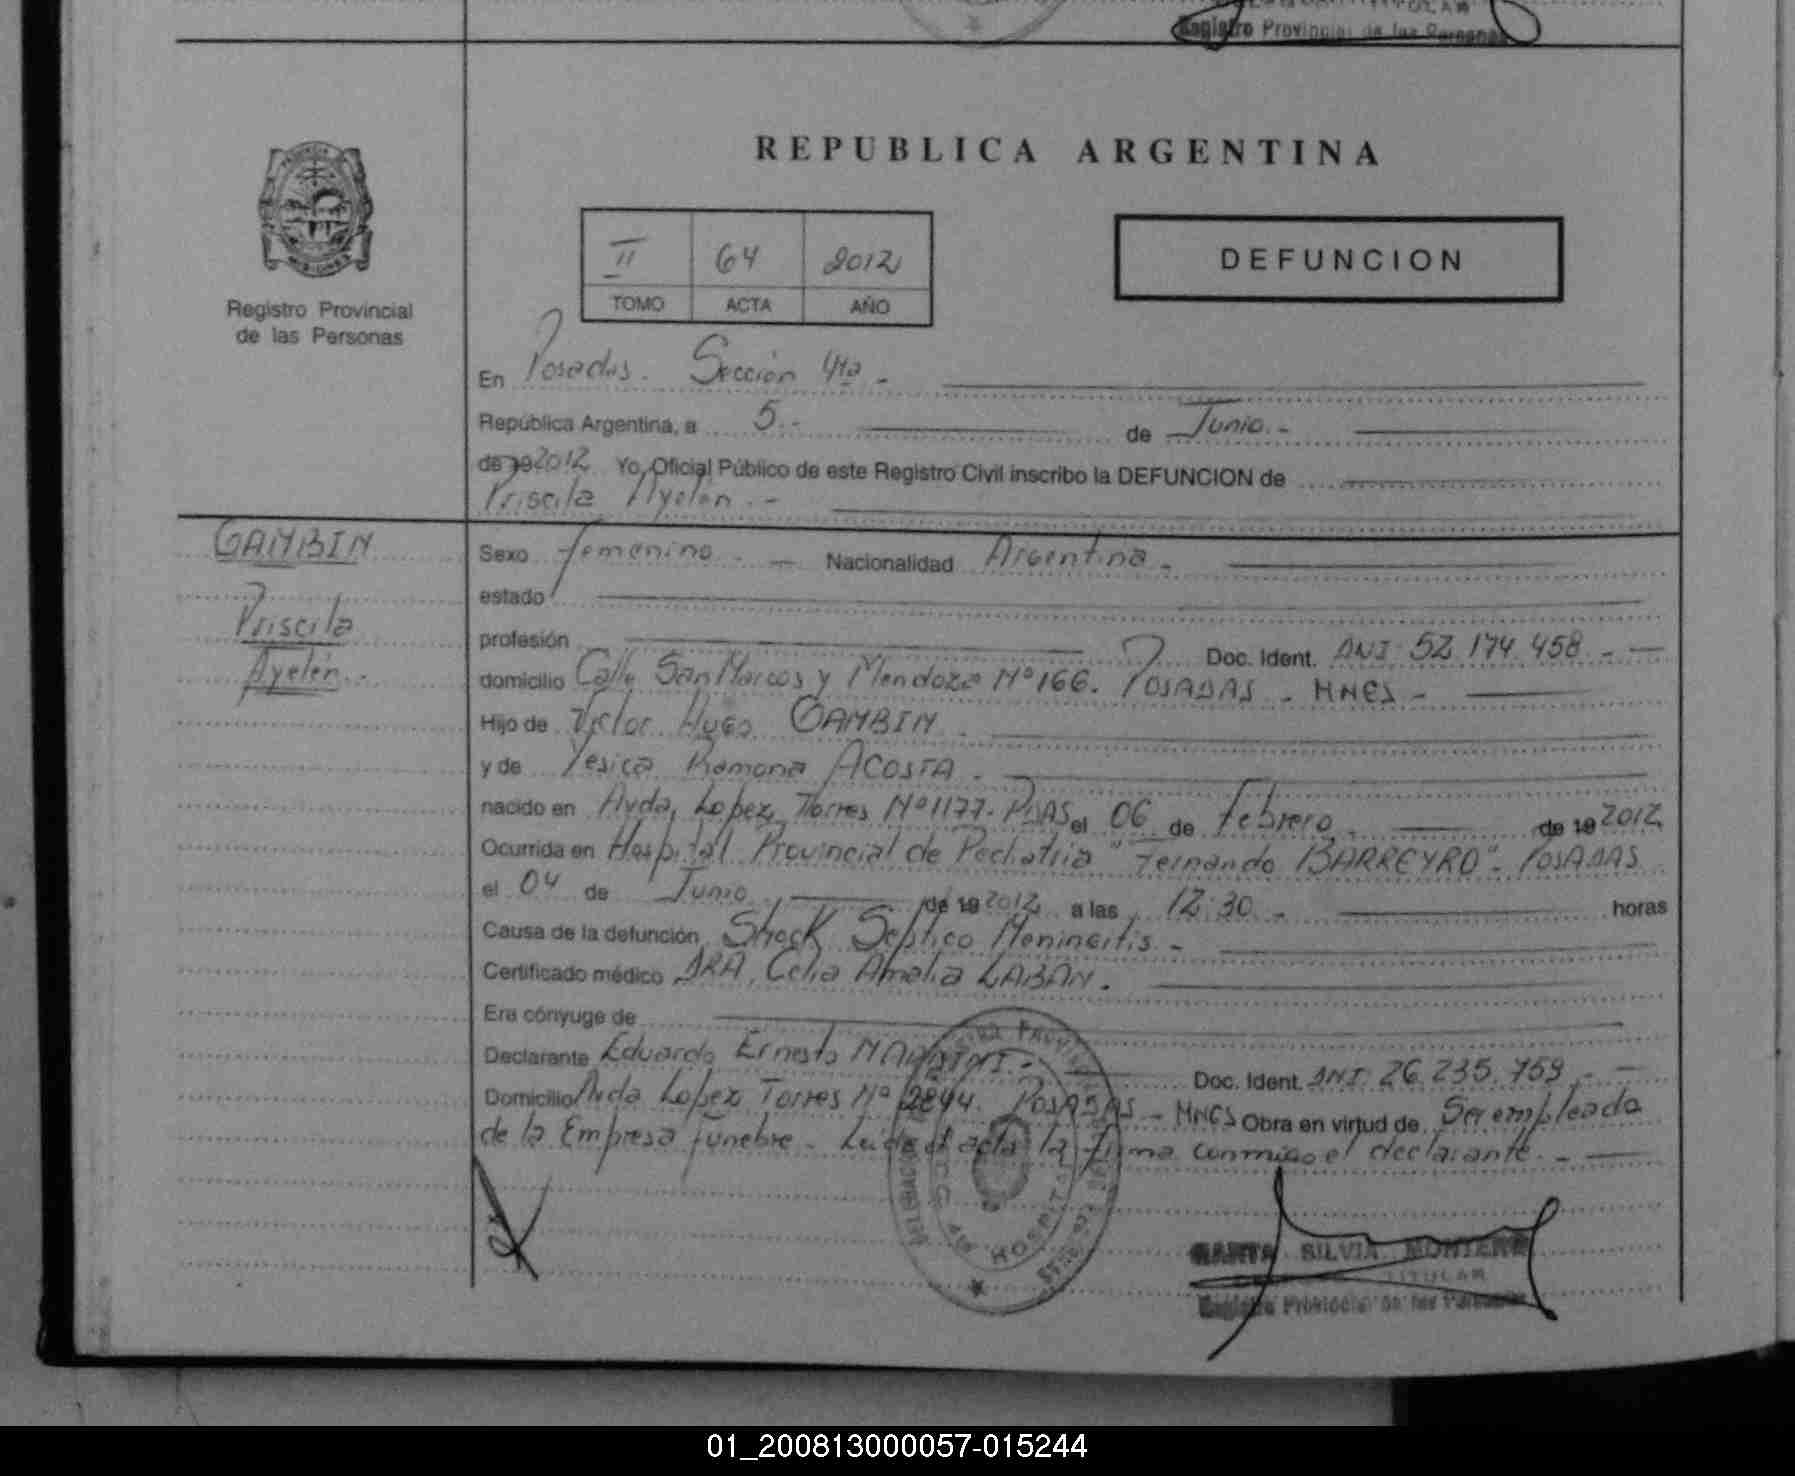 Registro Provincial de las Personas
REPUBLICA ARGENTINA
PROVINCIA
MISIONES
Registro Provincial
de las Personas
II 64 2012
TOMO ACTA AÑO
DEFUNCION
En Posadas. Sección 4ta -
República Argentina, a 5.- de Junio.-
de 19 2012 Yo, Oficial Público de este Registro Civil inscribo la DEFUNCION de
Priscila Ayelén.-
GAMBIN
Priscila
Ayelén.-
Sexo femenino. - Nacionalidad Argentina.
estado
profesión Doc. Ident. DNI 52.174.458.-
domicilio Calle San Marcos y Mendoza Nº 166. POSADAS - MNES -
Hijo de Victor Hugo GAMBIN
y de Yesica Ramona ACOSTA.
nacido en Avda. Lopez Torres Nº 1177. PDAS el 06 de Febrero de 19 2012
Ocurrida en Hospital Provincial de Pediatria "Fernando BARREYRO". POSADAS
el 04 de Junio de 19 2012 a las 12:30 - horas
Causa de la defunción Shock Septico Meningitis -
Certificado médico DRA. Celia Amalia LABAN.
Era cónyuge de
Declarante Eduardo Ernesto Doc. Ident. DNI 26.235.759.-
Domicilio Avda Lopez Torres Nº 2844. POSADAS - MNES Obra en virtud de Ser empleado
de la Empresa funebre - Leida el acta la firma conmigo el declarante.-
HOSPITAL
SILVIA MONTERO
TITULAR
Registro Provincial de las Personas
01_200813000057-015244